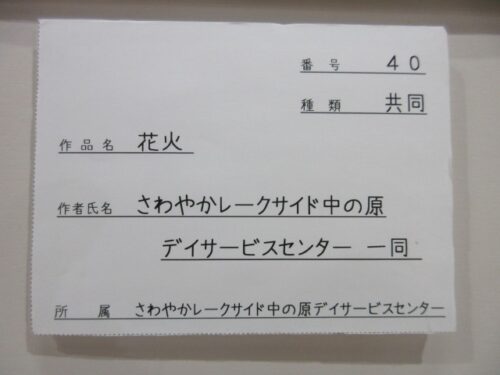 番号 40
種類 共同
作品名 花火
作者氏名 さわやかレークサイド中の原
デイサービスセンター 一同
所属 さわやかレークサイド中の原デイサービスセンター